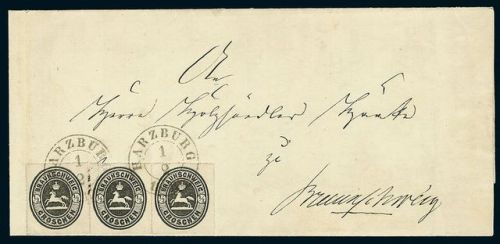 An
Herrn Holzhändler
zu
Braunschweig
HARZBURG
1
8
HARZBURG
1
8
BRAUNSCHWEIG
GROSCHEN
BRAUNSCHWEIG
GROSCHEN
BRAUNSCHWEIG
GROSCHEN